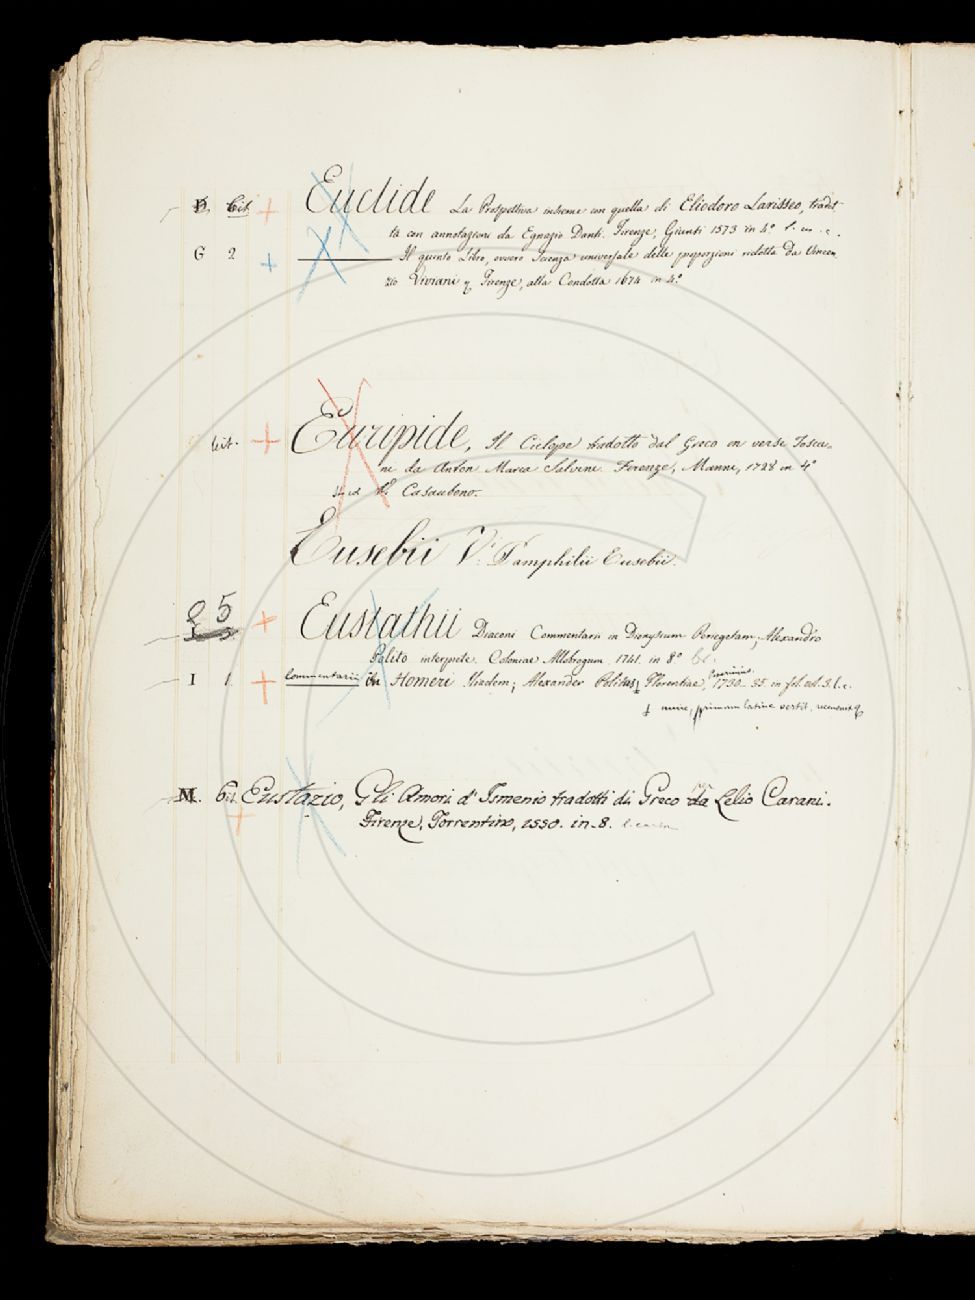 Cit. Euclide La Prospettiva insieme con quella di Eliodoro Larisseo, tradot-
ta con annotazioni da Egnazio Danti. Firenze, Giunti 1573 in 4°
G 2 Il quinto Libro, ovvero Scienza universale delle proporzioni ridotta da Vincen
zio Viviani Firenze, alla Condotta 1674 in 4°
Cit. Euripide, Il Ciclope tradotto dal Greco in verse Tosca-
ni da Anton Maria Salvini Firenze, Manni, 1728 in 4°
Casaubono.
Eusebii V. Pamphilii Eusebii.
5 Eustathii Diaconi Commentarii in Dionysium Periegetam, Alexandro
Polito interprete. Coloniae Allobrogum 1741. in 8°
I 1 Commentarii in Homeri Iliadem; Alexander Politus Florentiae, 1730-35. in fol. vol. 3.
primum latine vertit, recensuit
M. Cit. Eustazio, Gli Amori d' Ismenio tradotti di Greco da Lelio Carani.
Firenze, Torrentino, 1550. in-8.